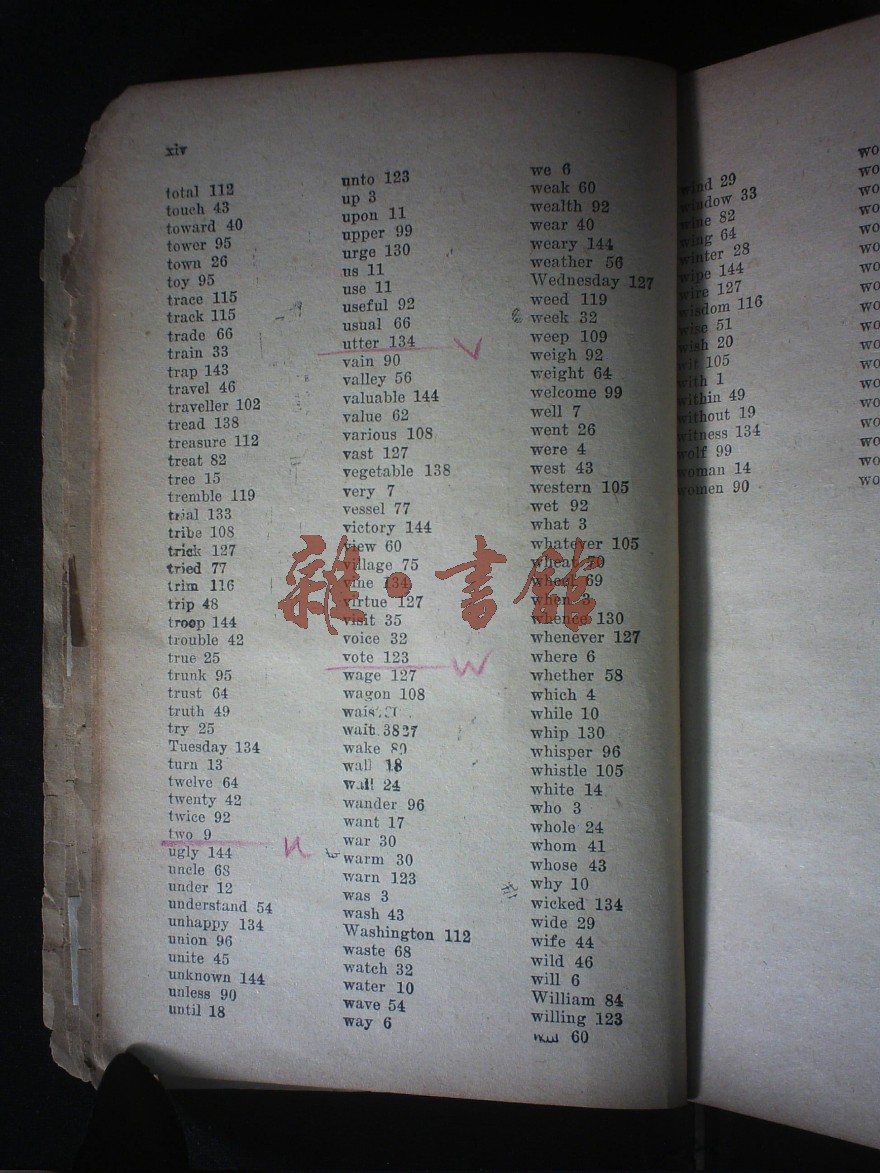 xiv
total 112
touch 43
toward 40
tower 95
town 26
toy 95
trace 115
track 115
trade 66
train 33
trap 143
travel 46
traveller 102
tread 138
treasure 112
treat 82
tree 15
tremble 119
trial 133
tribe 108
trick 127
tried 77
trim 116
trip 48
troop 144
trouble 42
true 25
trunk 95
trust 64
truth 49
try 25
Tuesday 134
turn 13
twelve 64
twenty 42
twice 92
two 9
u
ugly 144
uncle 68
under 12
understand 54
unhappy 134
union 96
unite 45
unknown 144
unless 90
until 18
unto 123
up 3
upon 11
upper 99
urge 130
us 11
use 11
useful 92
usual 66
utter 134
V
vain 90
valley 56
valuable 144
value 62
various 108
vast 127
vegetable 138
very 7
vessel 77
victory 144
view 60
village 75
vine 134
virtue 127
visit 35
voice 32
vote 123
W
wage 127
wagon 108
wait 3827
wake 80
wall 18
24
wander 96
want 17
war 30
warm 30
warn 123
was 3
wash 43
Washington 112
waste 68
watch 32
water 10
wave 54
way 6
we 6
weak 60
wealth 92
wear 40
weary 144
weather 56
Wednesday 127
weed 119
week 32
weep 109
weigh 92
weight 64
welcome 99
well 7
went 26
were 4
west 43
western 105
wet 92
what 3
whatever 105
wheat 70
wheel 69
when 3
whence 130
whenever 127
where 6
whether 58
which 4
while 10
whip 130
whisper 96
whistle 105
white 14
who 3
whole 24
whom 41
whose 43
why 10
wicked 134
wide 29
wife 44
wild 46
will 6
William 84
willing 123
60
wind 29
window 33
wine 82
wing 64
winter 28
wipe 144
wire 127
wisdom 116
wise 51
wish 20
wit 105
with 1
within 49
without 19
witness 134
wolf 99
woman 14
women 90
wo
wo
wo
wo
wo
wo
wo
wo
wo
wo
wo
wo
wo
wo
wo
wo
wo
wo
雜·書館